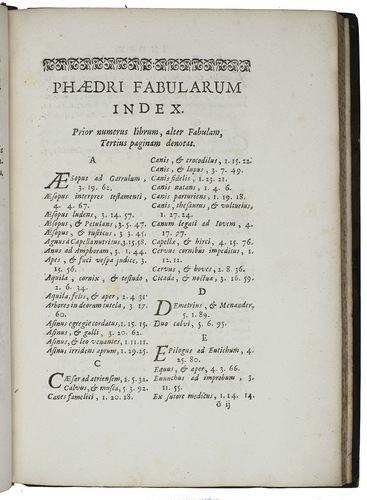 PHÆDRI FABULARUM
INDEX.
Prior numerus librum, alter Fabulam,
Tertius paginam denotat.
A
ÆSopus ad Garrulum,
3. 19. 62.
Æsopus interpres testamenti,
4. 4. 67.
Æsopus ludens, 3. 14. 57.
Æsopus, & Petulans, 3. 5. 47.
Æsopus, & rusticus 3. 3. 45.
Agnus à Capella nutricus, 3. 15. 58.
Anus ad Amphoram, 3. 1. 44.
Apes, & fuci vespa judice, 3.
15. 56.
Aquila, cornix, & testudo,
2. 6. 34.
Aquila, felis, & aper, 2. 4 31
Arbores in deorum tutela, 3. 17.
60.
Asinus egregie cordatus, 1. 15. 15.
Asinus, & galli, 3. 20. 62.
Asinus, & leo venantes, 1. 11. 11.
Asinus irridens aprum, 1. 29. 25.
C
CÆsar ad atriensem, 2. 5. 32.
Calvus, & musca, 5. 3. 92.
Canes famelici, 1. 20. 18.
Canis, & crocodilus, 1. 25. 22.
Canis, & lupus, 3. 7. 49.
Canis fidelis, 1. 23. 21.
Canis natans, 1. 4. 6.
Canis parturiens, 1. 19. 18.
Canis, thesaurus, & vulturius,
1. 27. 24.
Canum legati ad Iovem, 4.
17. 77.
Capella, & hirci, 4. 15. 76.
Cervus cornibus impeditus, 1.
12. 12.
Cervus, & boves, 2. 8. 36.
Cicada, & noctua, 3. 16. 59.
D
DEmetrius, & Menander,
5. 1. 89.
Duo calvi, 5. 6. 95.
E
EPilogus ad Eutichum, 4.
25. 80.
Equus, & aper, 4. 3. 66.
Eunuchus ad improbum, 3.
11. 55.
Ex sutore medicus, 1. 14. 14.
ő ij